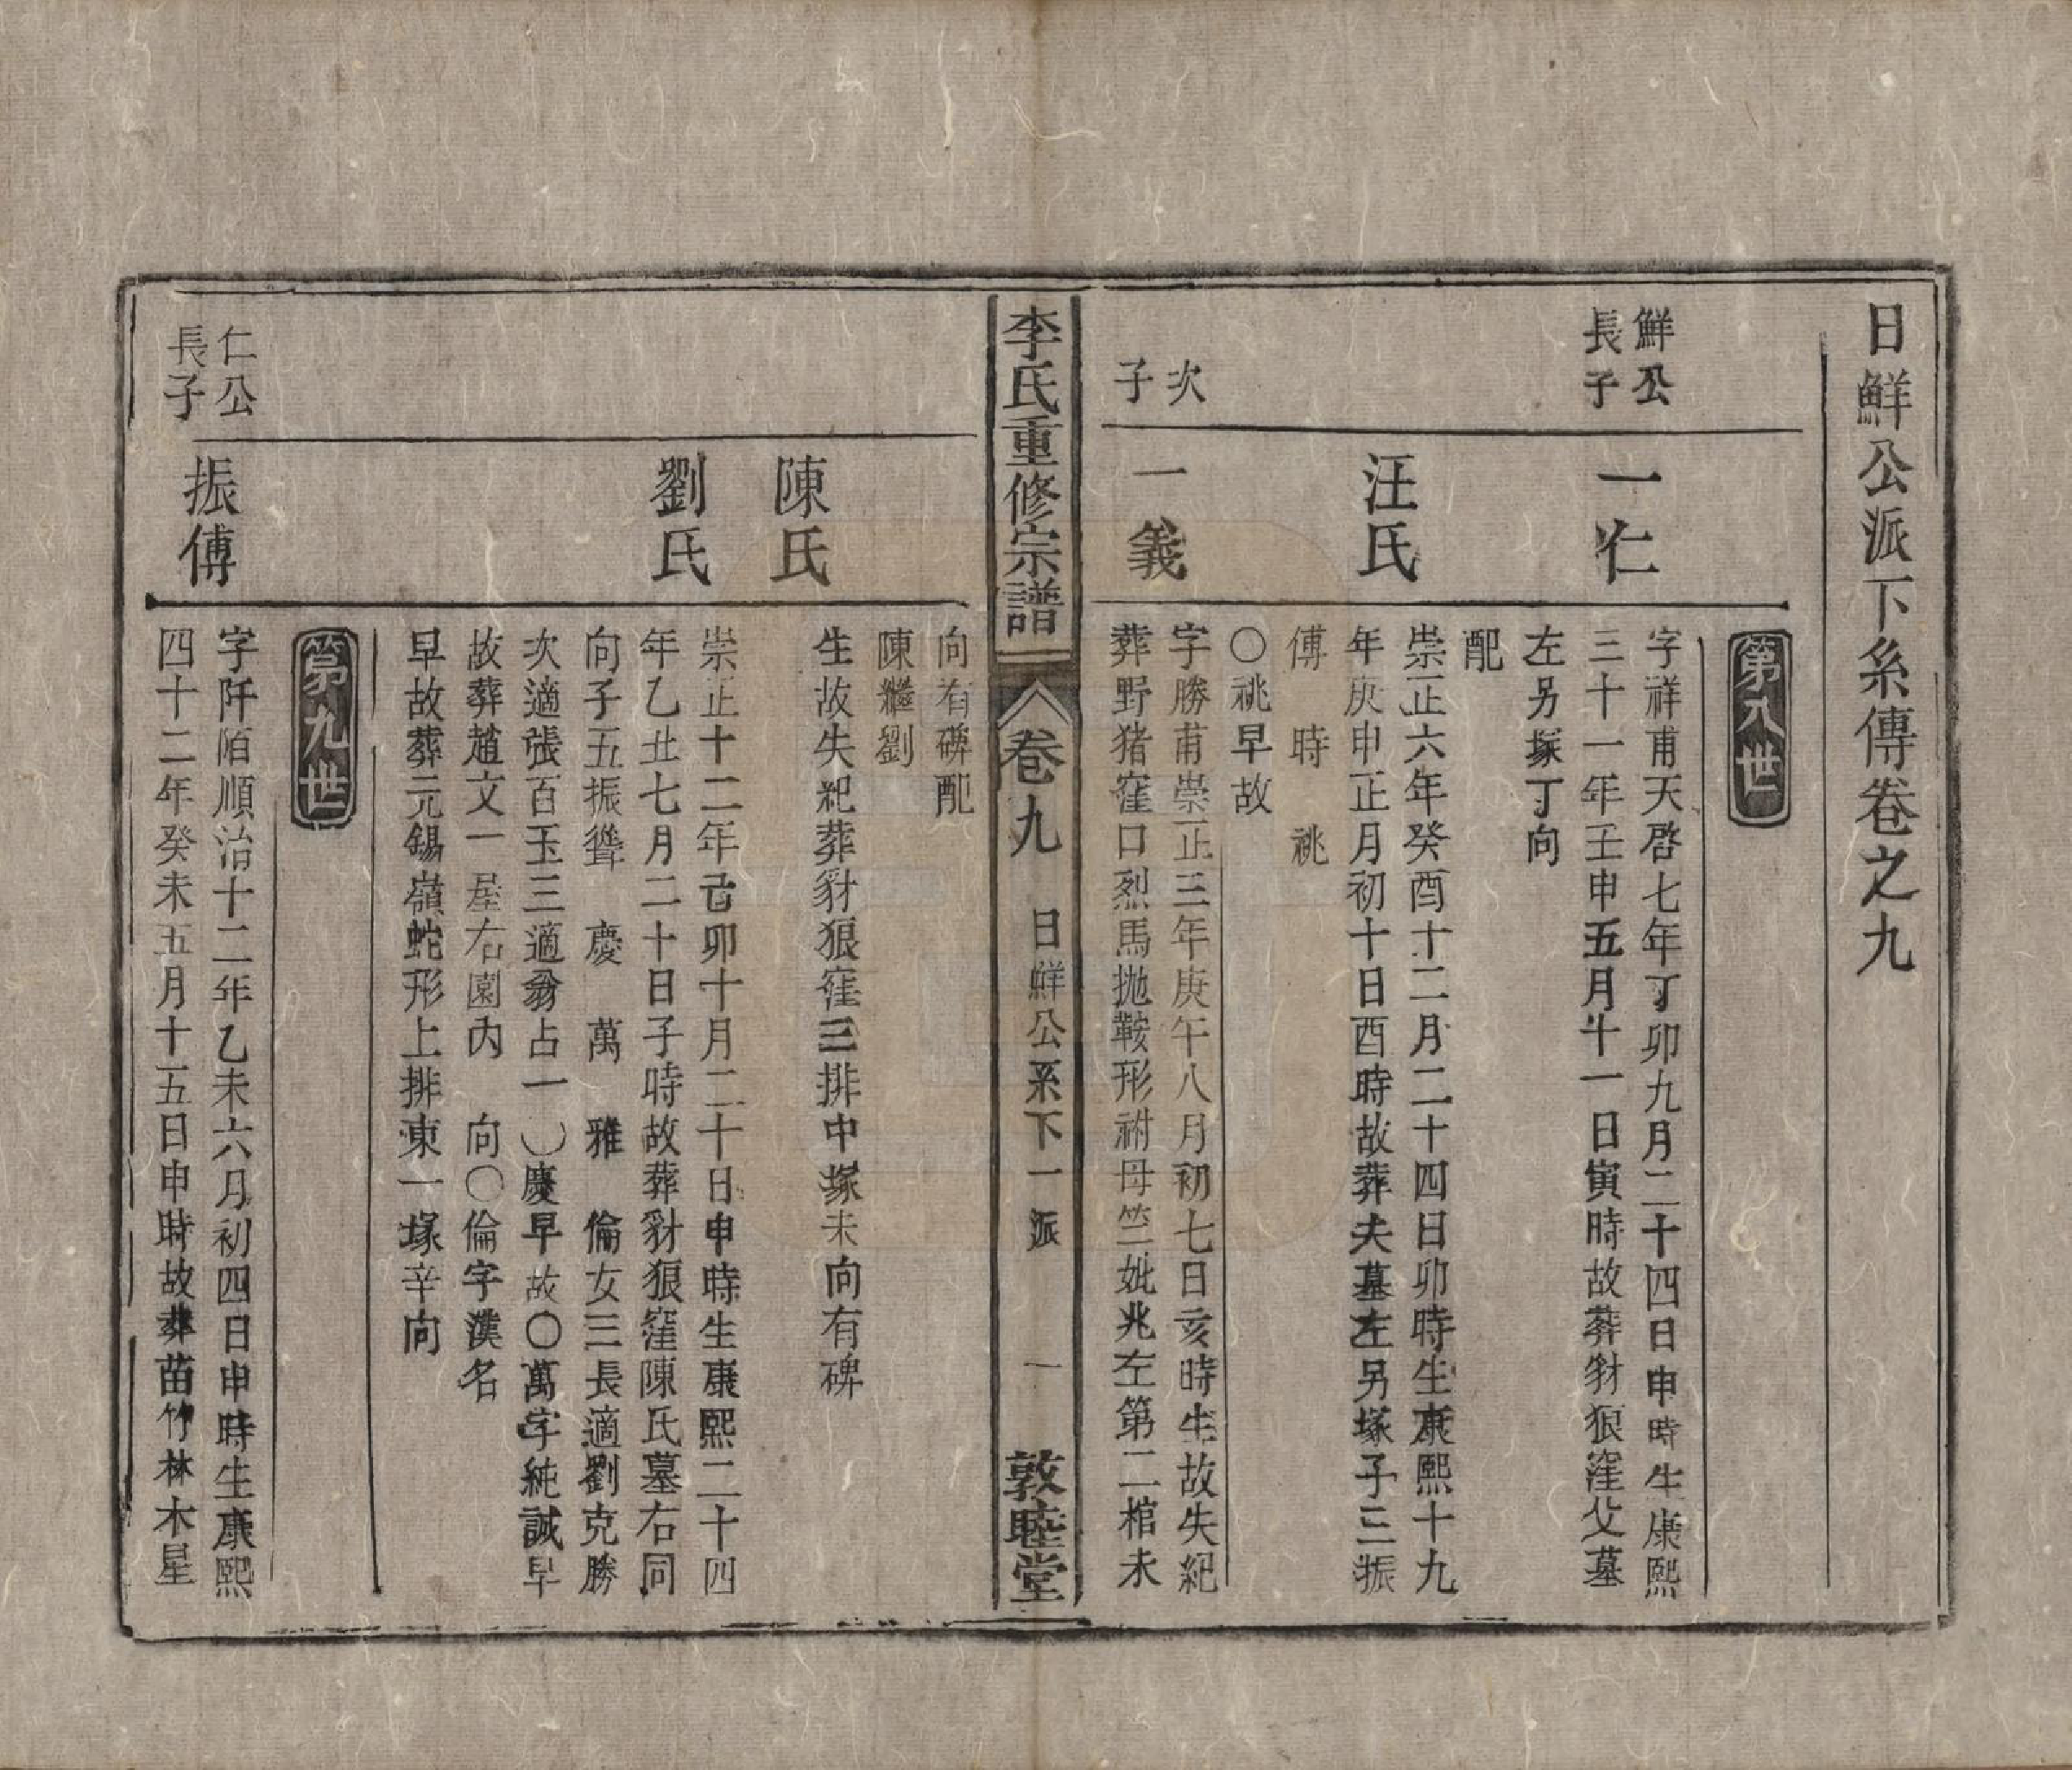 日鮮公派下糸傳卷之九
第八世
鮮公
長子
一仁
字祥甫天啓七年丁卯九月二十四日申時生康熙
三十一年壬申五月十一日寅時故葬豺狼窪父墓
左另塚丁向
配
汪氏
崇正六年癸酉十二月二十四日卯時生康熙十九
年庚申正月初十日酉時故葬夫墓左另塚子三振
傅　時　祧
〇祧早故
次
子
一義
字勝甫崇正三年庚午八月初七日亥時生故失紀
葬野猪窪口烈馬拋鞍形祔母竺妣兆左第二棺未
李氏重修宗譜
卷九
日鮮公系下一派
一
敦睦堂
向有碑配
陳繼劉
陳氏
生故失紀葬豺狼窪三排中塚未向有碑
劉氏
崇正十二年己卯十月二十日申時生康熙二十四
年乙丑七月二十日子時故葬豺狼窪陳氏墓右同
向子五振聳　慶　萬　雅　倫女三長適劉克勝
次適張百玉三適翁占一〇慶早故〇萬字純誠早
故葬趙文一屋右園內　向〇倫字漢名
早故葬元錫嶺蛇形上排東一塚辛向
第九世
仁公
長子
振傅
字阡陌順治十二年乙未六月初四日申時生康熙
四十二年癸未五月十五日申時故葬苗竹林木星